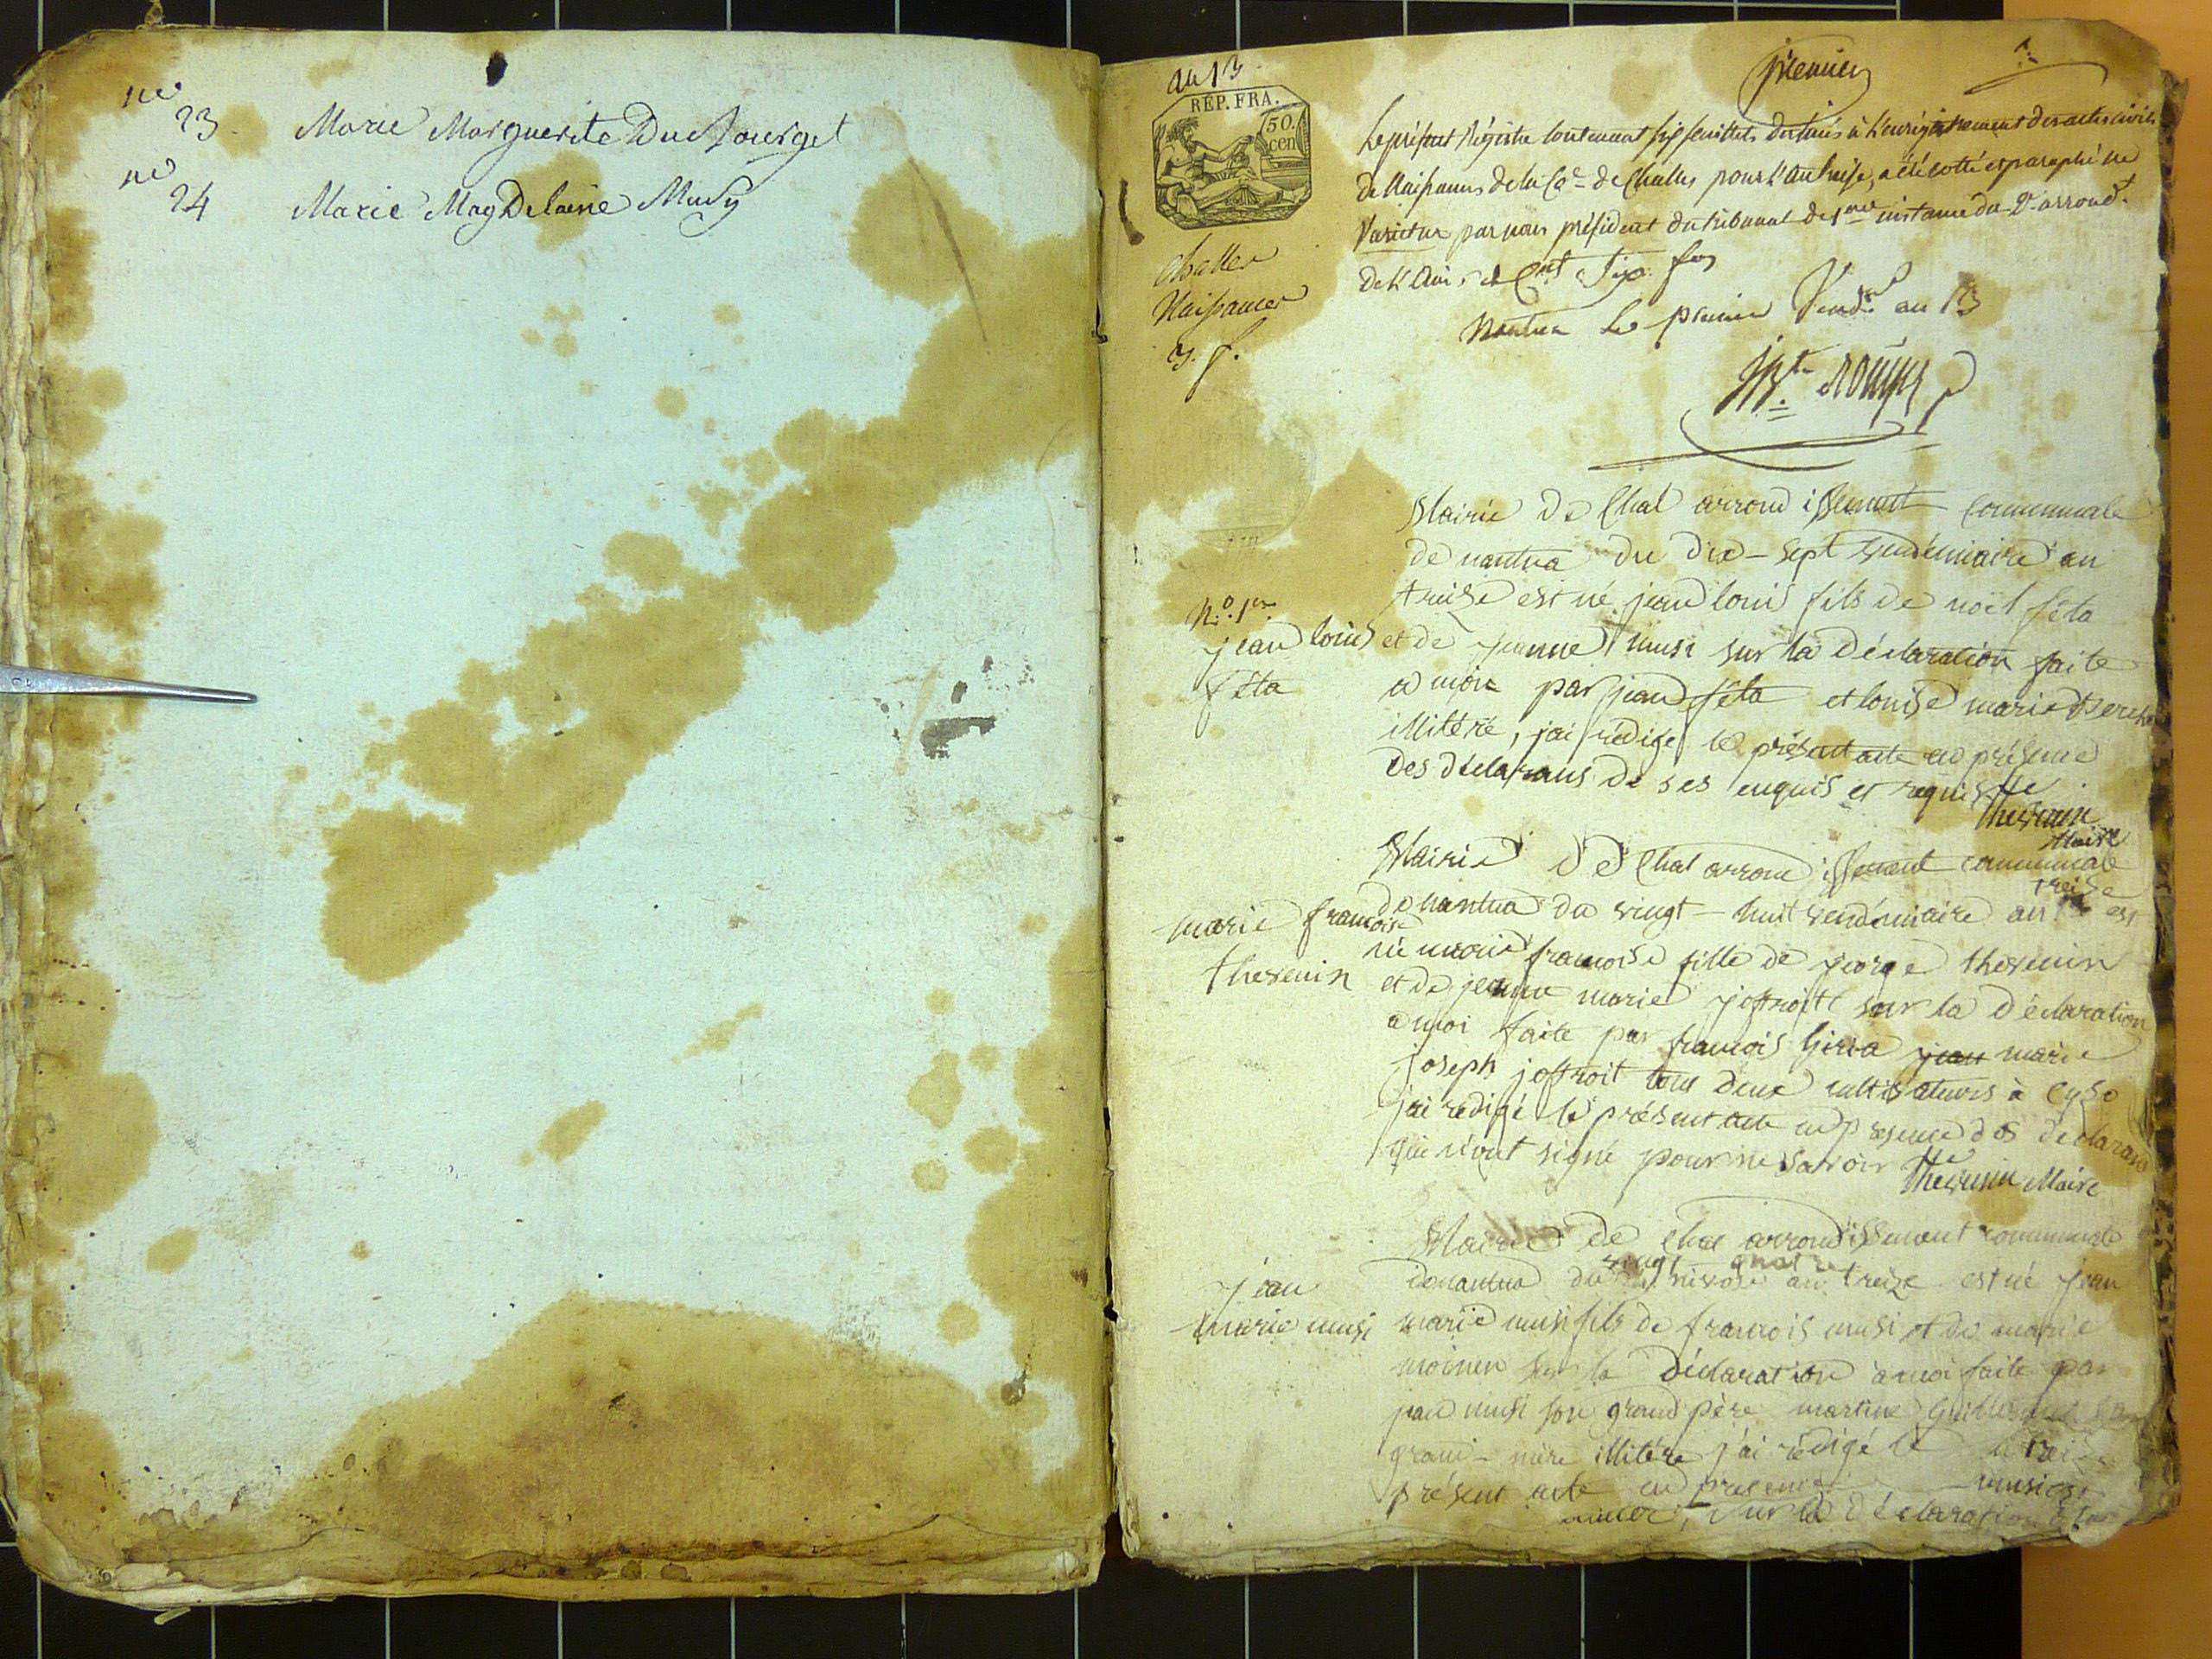 no
23 Marie Marguerite Du Bourget
no
24 Marie MagDelaine Musy
an 13
premier
REP. FRA.
50.
cen
Challes
Naissances
Le présent Régistre contenant six feuillets destinés à l'enrégistrement des actes civils
de Naissances de la Cne de Challes pour l'an treise, a été cotté et paraphé ne
Varietur par nous président du tribunal de 1ere instance du 2e arrondt
de l'Ain
Nantua le premier Vendre an 13
Mairie de Chal arrondissement communale
de nantua du dix-sept vendémiaire an
treise est né jean louis fils de noël féta
No. 1er
jean louis
féta
et de jeanne musi sur la déclaration faite
a moi par jean féta et louise marie
illitéré, j'ai rédigé le présent acte en présence
des déclarans de ses enquis et requis
thevenin
Maire
Mairie de Chal arrondissement communale
de nantua du vingt-huit vendémiaire an treise est
marie francoise
thevenin
née marie francoise fille de george thevenin
et de jeanne marie joffroit sur la déclaration
a moi faite par francois Giria jean marie
joseph joffroit tous deux cultivateurs à
j'ai rédigé le présent acte en présence des déclarans
qui n'ont signé pour ne savoir
thevenin Maire
Mairie de Chal arrondissement communale
de nantua du vingt quatre nivose an treize est né jean
jean
marie musi
marie musi fils de francois musi et de marie
moinen sur la déclaration a moi faite par
jean musi son grand père martine
grand-mère illitére j'ai rédigé le
présent acte en presence
sur la déclaration